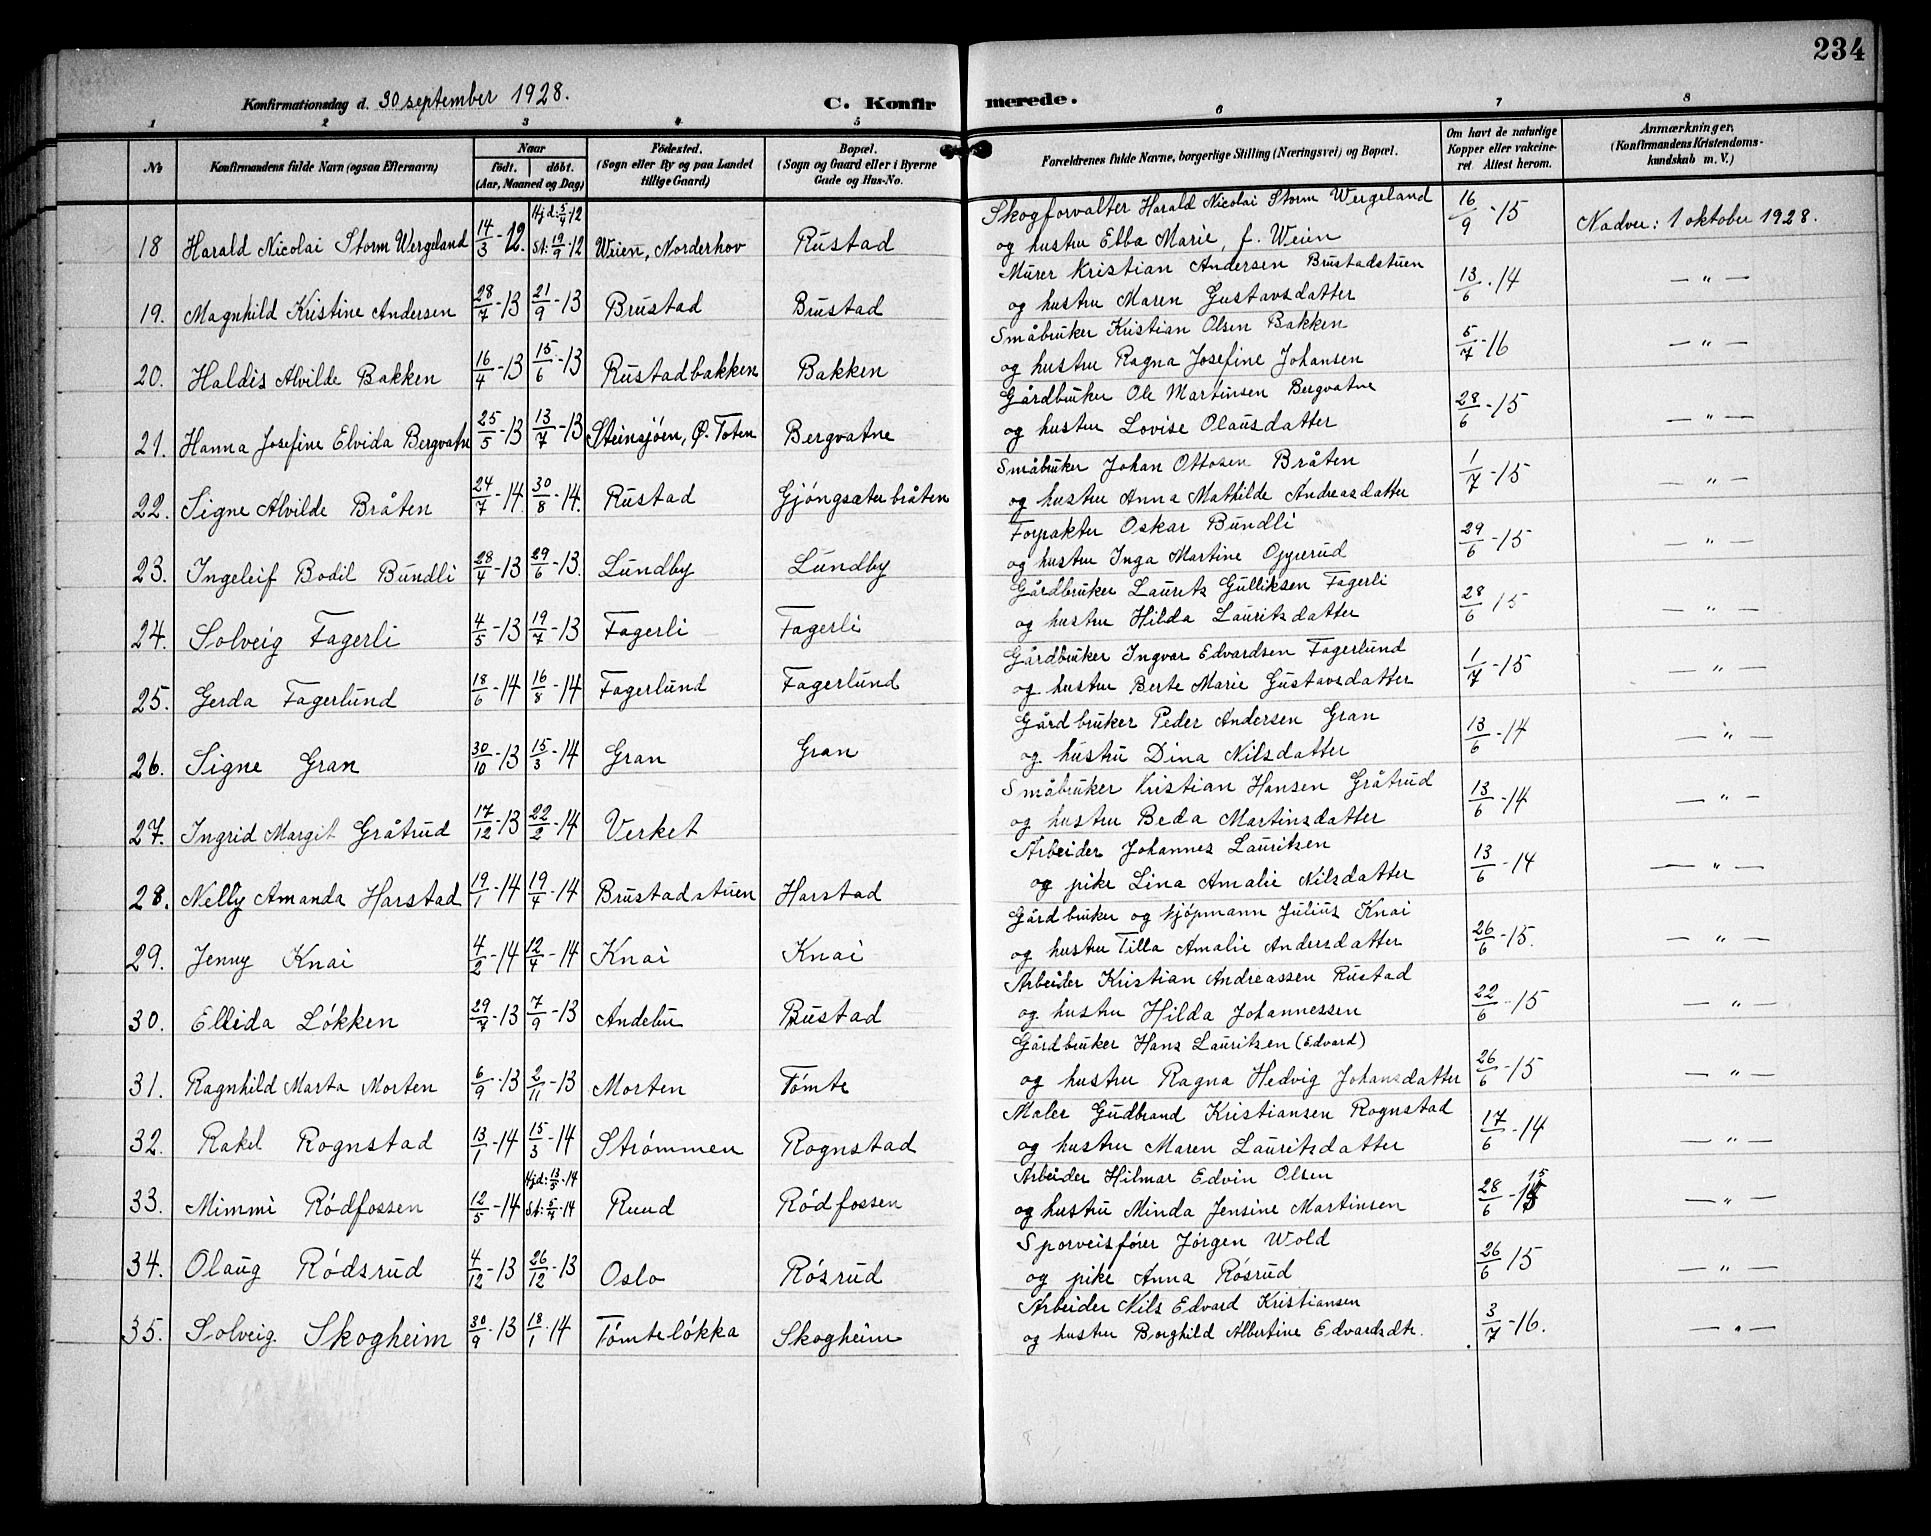 234
Konfirmationsdag d. 30 september 1928. C. Konfirmerede.
1 2 3 4 5 6 7 8
No Konfirmandens fulde Navn (ogsaa Efternavn) Naar født. døbt. (Aar, Maaned og Dag) Fødested. (Sogn eller By og paa Landet tillige Gaard) Bopæl. (Sogn og Gaard eller i Byerne Gade og Hus-No. Forældrenes fulde Navne, borgerlige Stilling (Næringsvei) og Bopæl. Om havt de naturlige Kopper eller vakcineret. Attest herom. Anmærkninger. (Konfirmandens Kristendomskundskab m. V.)
18 Harald Nicolai Storm Wergeland 14/3-12. Hjd: 5/4-12 St: 19/9-12 Weien, Norderhov Rustad Skogforvalter Harald Nicolai Storm Wergeland 16/9-15 Nadver: 1 oktober 1928.
og hustru Ebba Marie, f. Weien
19. Magnhild Kristine Andersen 28/7-13 21/9-13 Brustad Brustad Murer Kristian Andersen Brustadstuen 13/6-14 — " —
og hustru Maren Gustavsdatter
20. Haldis Alvilde Bakken 16/4-13 15/6-13 Rustadbakken Bakken Småbruker Kristian Olsen Bakken 5/7-16 — " —
og hustru Ragna Josefine Johansen
21. Hanna Josefine Elvida Bergvatn 25/5-13 13/7-13 Steinsjøen, Ø. Toten Bergvatne Gårdbruker Ole Martinsen Bergvatne 28/6-15 — " —
og hustru Lovise Olausdatter
22. Signe Alvilde Bråten 24/7-14. 30/8-14. Rustad Gjøngsæterbråten Småbruker Johan Ottosen Bråten 1/7-15 — " —
og hustru Anna Mathilde Andreasdatter
23. Ingeleif Bodil Bundli 28/4-13 29/6-13. Lundby Lundby Forpakter Oskar Bundli 29/6-15 — " —
og hustru Inga Martine Opperud
24. Solveig Fagerli 4/5-13 19/7-13 Fagerli Fagerli Gårdbruker Laurits Gulliksen Fagerli 28/6 15 — " —
og hustru Hilda Lauritsdatter
25. Gerda Fagerlund 18/6-14 16/8-14 Fagerlund Fagerlund Gårdbruker Ingvar Edvardsen Fagerlund 1/7-15 — " —
og hustru Berte Marie Gustavsdatter
26. Signe Gran 30/10-13 15/3-14 Gran Gran Gårdbruker Peder Andersen Gran 13/6-14 — " —
og hustru Dina Nilsdatter
27. Ingrid Margit Gråtrud 17/12-13 22/2-14 Verket Småbruker Kristian Hansen Gråtrud 13/6-14 — " —
og hustru Beda Martinsdatter
28. Nelly Amanda Harstad 19/1-14 19/4-14 Brustadstuen Harstad Arbeider Johannes Lauritsen 13/6-14 — " —
og pike Lina Amalie Nilsdatter
29. Jenny Knai 4/2-14 12/4-14 Knai Knai Gårdbruker og kjøpmann Julius Knai 26/6-15. — " —
og hustru Tilla Amalie Andersdatter
30. Ellida Løkken 29/7-13 7/9-13 Andebu Rustad Arbeider Kristian Andreassen Rustad 22/6-15 — " —
og hustru Hilda Johannessen
31. Ragnhild Marta Morten 6/9-13 2/11-13 Morten Tømte Gårdbruker Hans Lauritsen (Edvard) 26/6-15 — " —
og hustru Ragna Hedvig Johansdatter
32. Rakel Rognstad 13/1-14 15/3-14 Strømmen Rognstad Maler Gudbrand Kristiansen Rognstad 17/6-14 — " —
og hustru Maren Lauritsdatter
33. Mimmi Rødfossen 12/5-14 Hjd: 13/5-14 St: 5/7-14 Ruud Rødfossen Arbeider Hilmar Edvin Olsen 28/6-15 — " —
og hustru Minda Jensine Martinsen
34. Olaug Rødsrud 4/12-13 26/12-13 Oslo Røsrud Sporveisfører Jørgen Wold 26/6 15 — " —
og pike Anna Røsrud
35. Solveig Skogheim 30/9-13 18/1-14 Tømteløkka Skogheim Arbeider Nils Edvard Kristiansen 3/7-16. — " —
og hustru Borghild Albertine Edvardsdtr.